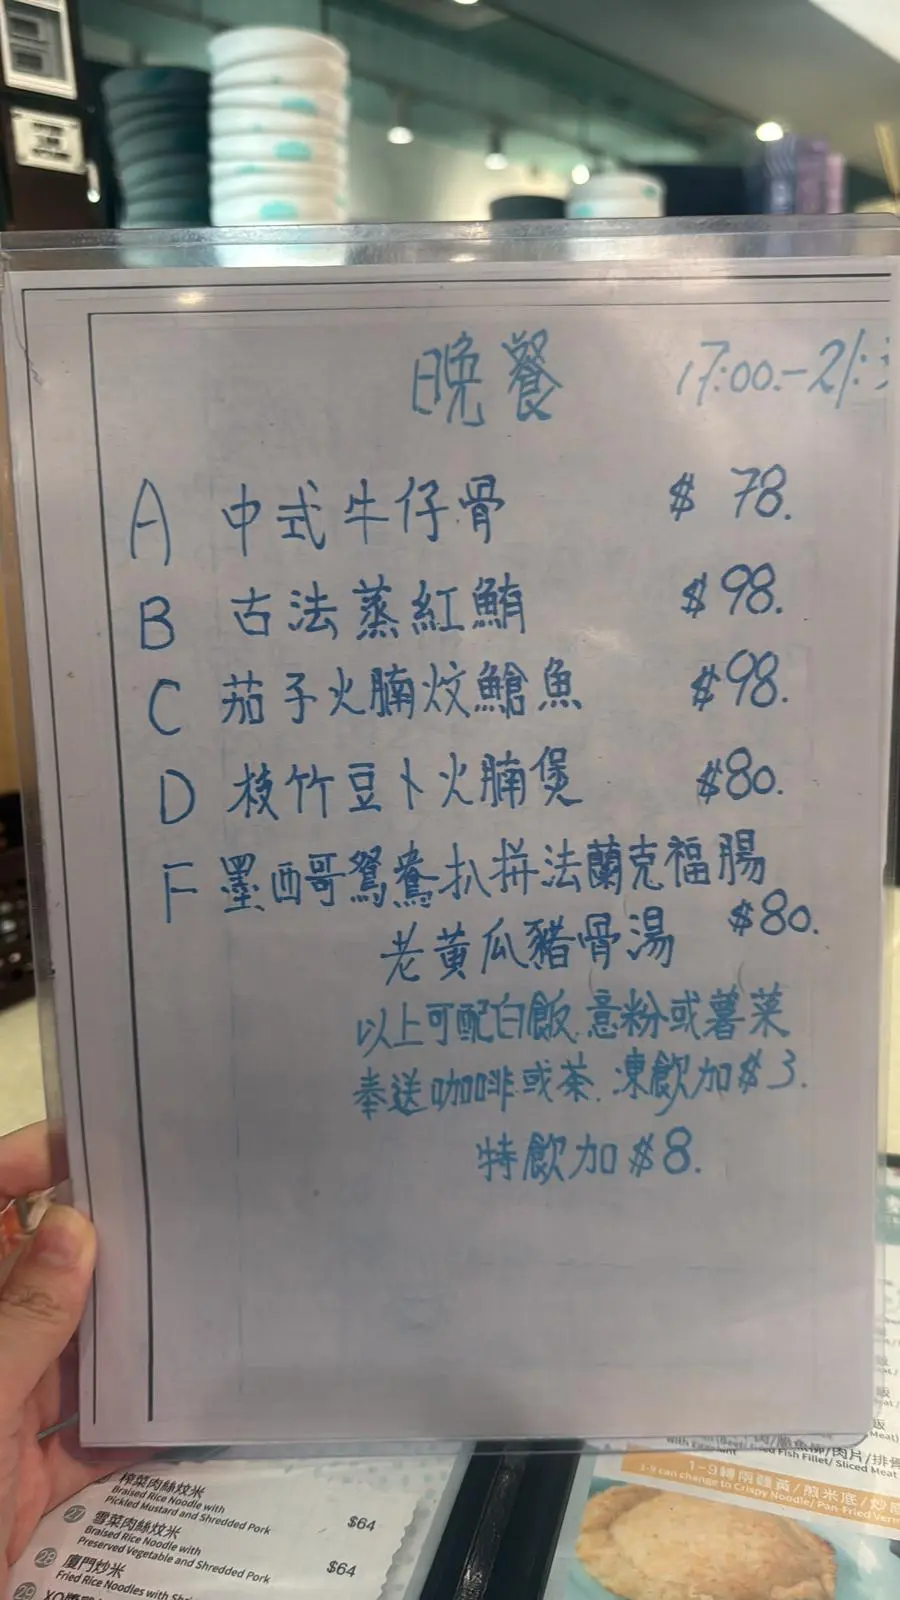 晚餐 17:00.-21:
A 中式牛仔骨 $78.
B 古法蒸紅鮪 $98.
C 茄子火腩炆鱠魚 $98.
D 枝竹豆卜火腩煲 $80.
F 墨西哥鴛鴦扒拼法蘭克福腸
老黃瓜豬骨湯 $80.
以上可配白飯.意粉或薯菜
奉送咖啡或茶.凍飲加$3.
特飲加$8.
榨菜肉絲炆米
Braised Rice Noodle with
Pickled Mustard and Shredded Pork $64
27 雪菜肉絲炆米
Braised Rice Noodle with
Preserved Vegetable and Shredded Pork $64
28 廈門炒米
Fried Rice Noodles with
29
Fish Fillet/ Sliced Meat
1-9轉兩麵黃/煎米底/炒底
1-9 can change to Crispy Noodle/ Pan-Fried Verm